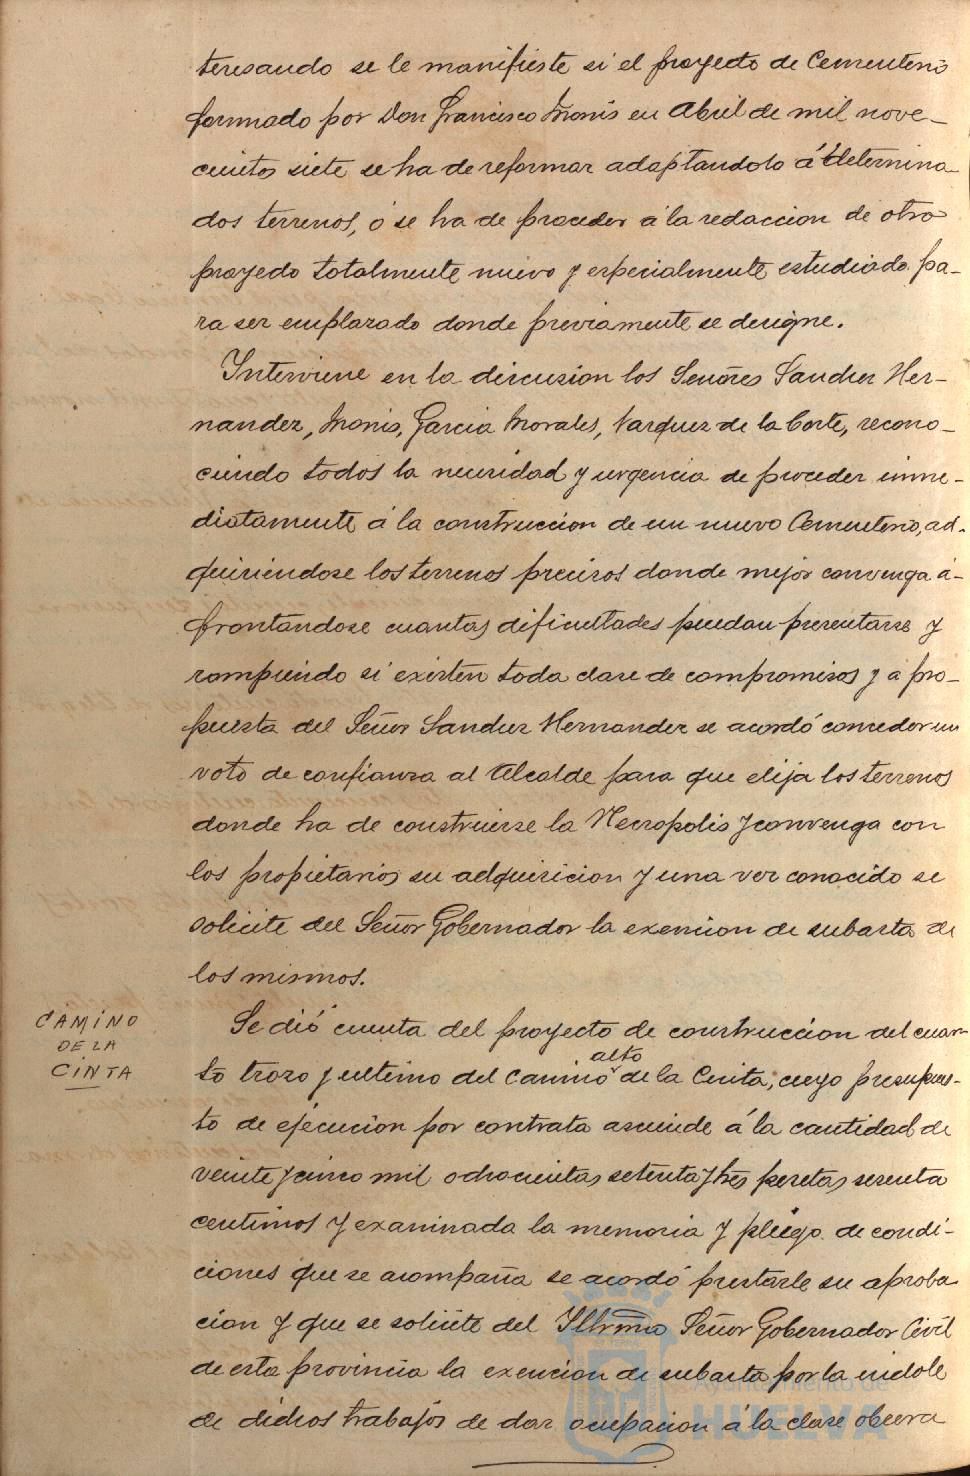 teresando se le manifieste si el proyecto de Cementerio
formado por Don Francisco Monis en Abril de mil nove-
cientos siete se ha de reformar adaptandolo á determina-
dos terrenos, ó se ha de proceder á la redaccion de otro
proyecto totalmente nuevo y especialmente estudiado pa-
ra ser emplazado donde previamente se designe.
Interviene en la discusion los Señores Sanchez Her-
nandez, Monis, Garcia Morales, Vazquez de la Corte, recono-
ciendo todos la necesidad y urgencia de proceder inme-
diatamente á la construccion de un nuevo Cementerio, ad-
quiriendose los terrenos precisos donde mejor convenga á-
frontándose cuantas dificultades puedan presentarse y
rompiendo si existen toda clase de compromisos y á pro-
puesta del Señor Sanchez Hernandez se acordó conceder un
voto de confianza al Alcalde para que elija los terrenos
donde ha de construirse la Necropolis y convenga con
los propietarios su adquisicion y una vez conocido se
solicite del Señor Gobernador la exencion de subasta de
los mismos.
CAMINO
DE LA
CINTA
Se dió cuenta del proyecto de construccion del cuar-
to trozo y ultimo del Camino alto de la Cinta, cuyo presupues-
to de ejecucion por contrata asciende á la cantidad de
veinte y cinco mil ochocientas setenta y tres pesetas sesenta
centimos y examinada la memoria y pliego de condi-
ciones que se acompaña se acordó prestarle su aproba
cion y que se solicite del Illmo Señor Gobernador Civil
de esta provincia la exencion de subasta por la indole
de dichos trabajos de dar ocupacion á la clase obrera
Ayuntamiento de
HUELVA